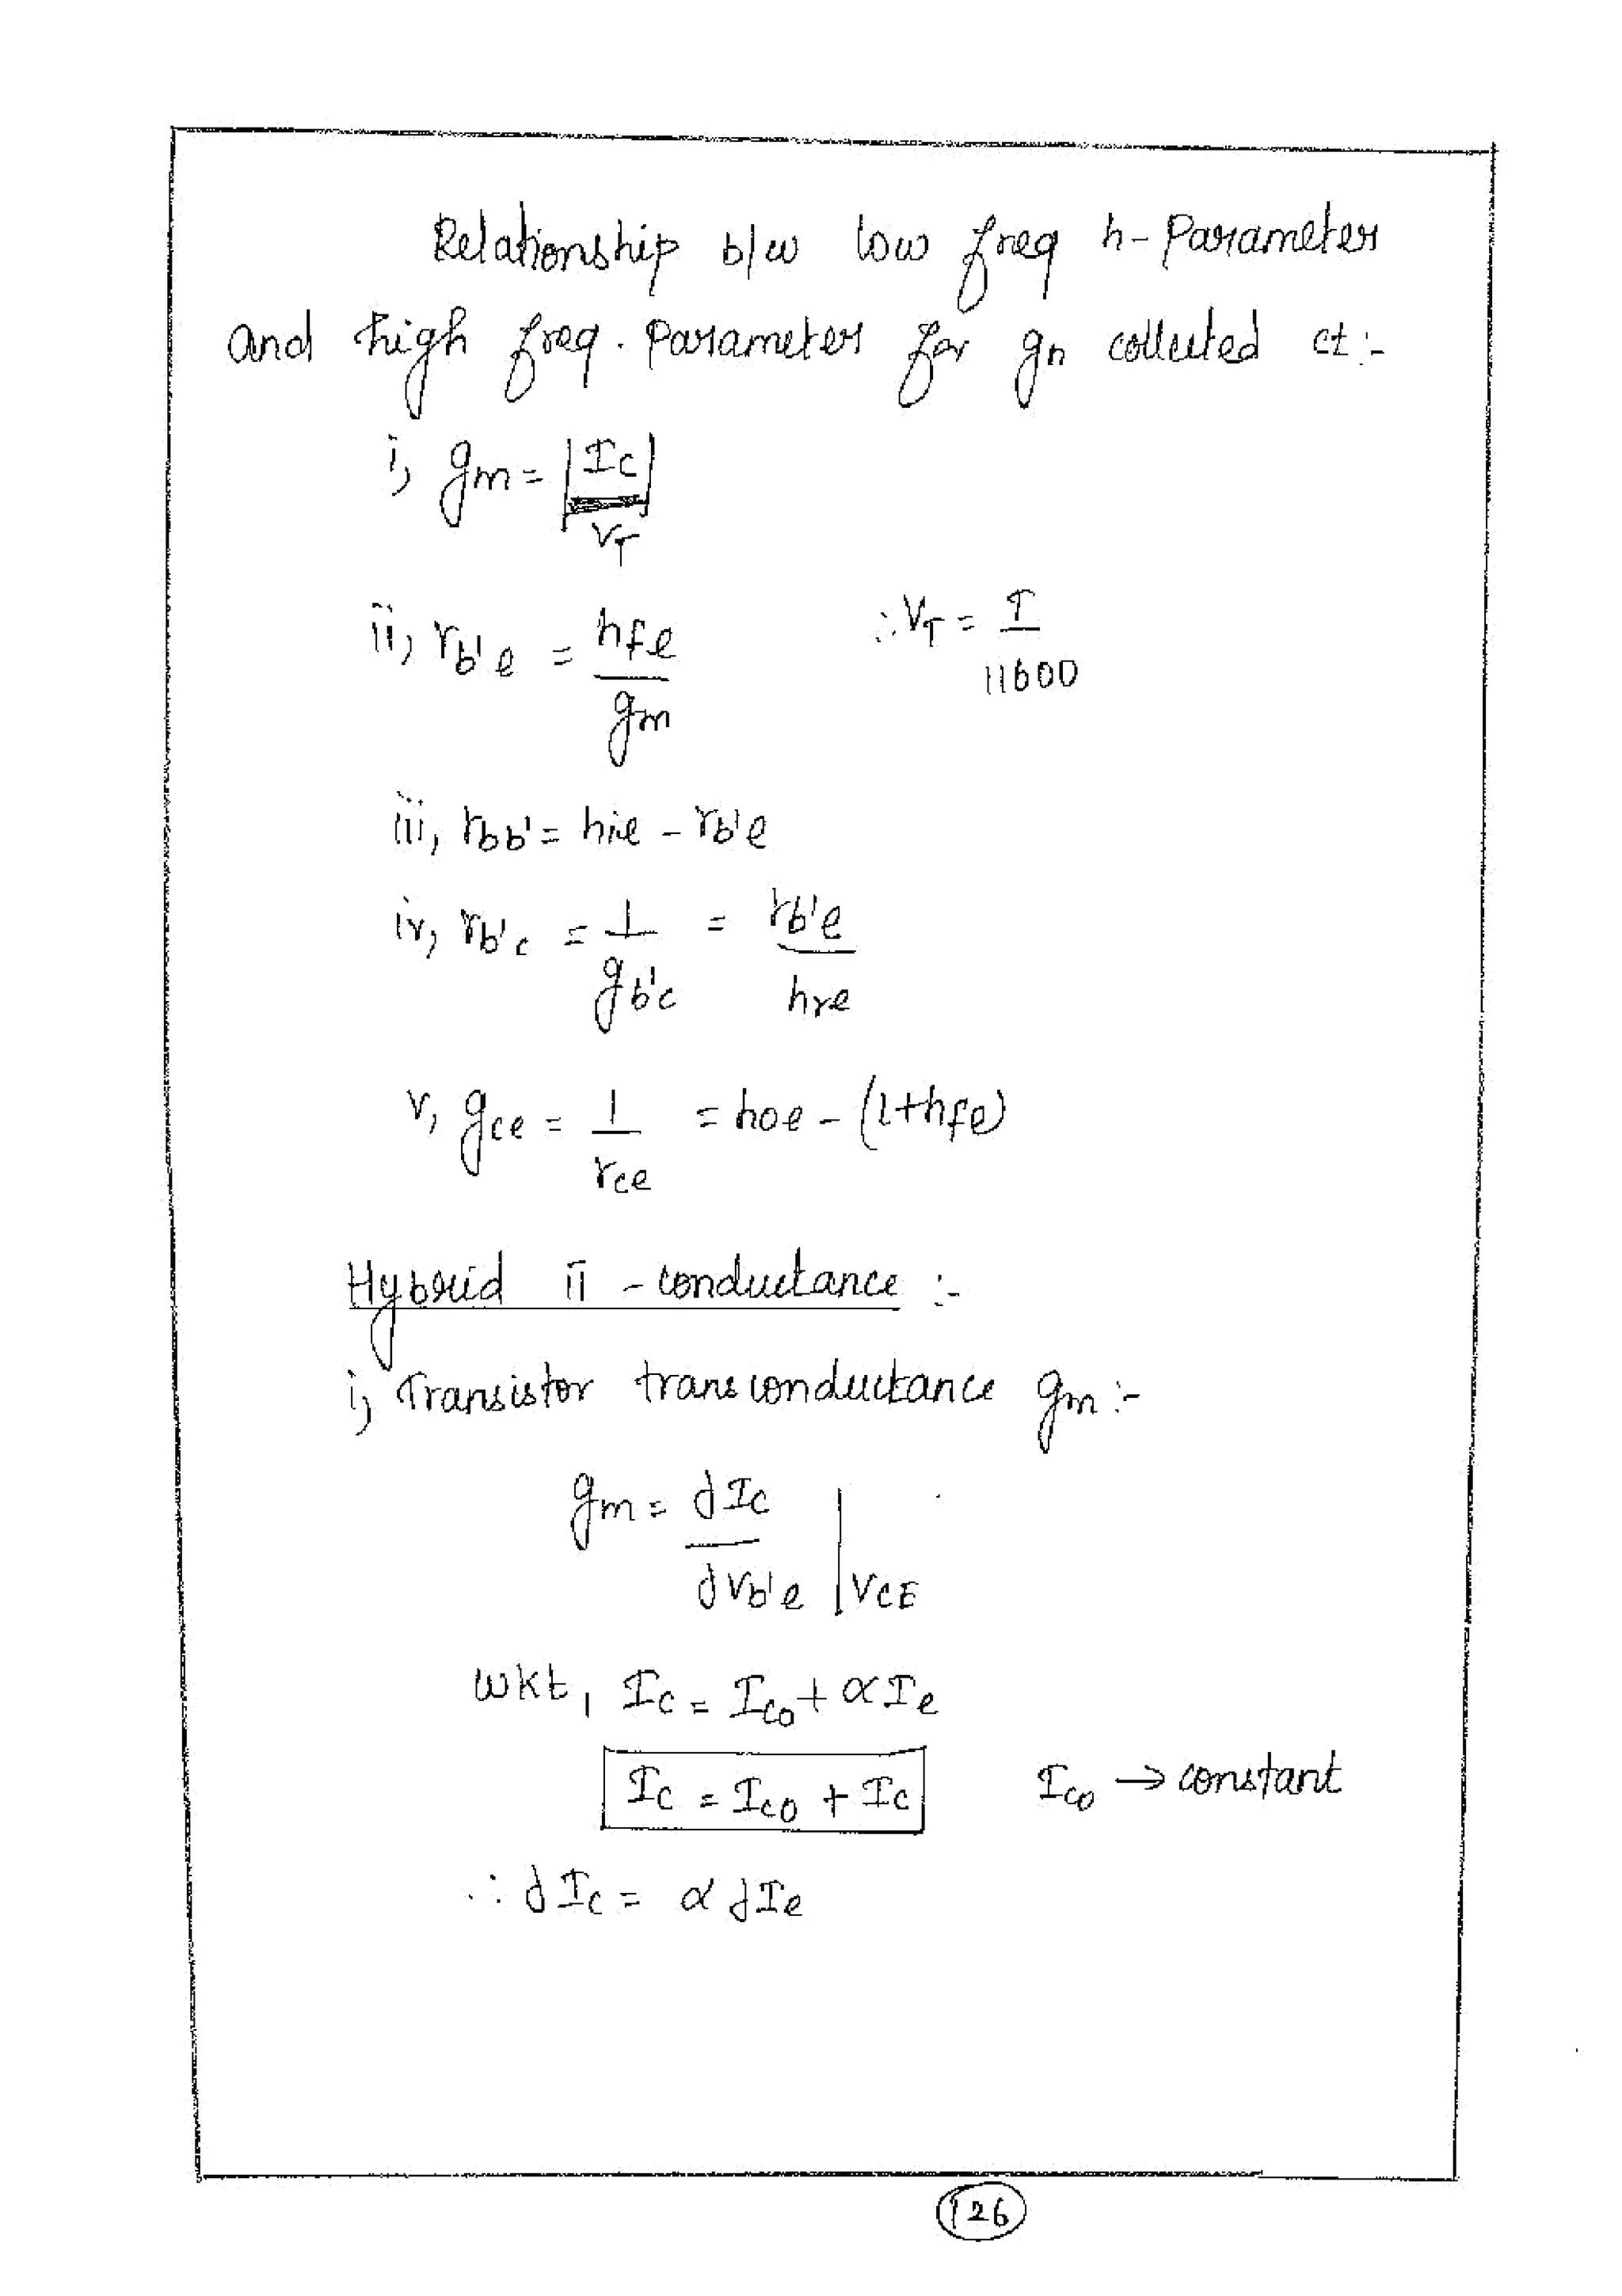 Relationship b/w low freq h-Parameter
and high freq. Parameter for gn collected ct:-
i, gm = |Ic| / VT
ii, rb'e = hfe / gm ∴ VT = T / 11600
iii, rbb' = hie - rb'e
iv, rb'c = 1 / gb'c = rb'e / hre
v, gce = 1 / rce = hoe - (1+hfe)
Hybrid π - conductance :-
i, Transistor transconductance gm :-
gm = ∂Ic / ∂Vb'e | VCE
wkt, Ic = Ico + αIe
Ic = Ico + Ic Ico → constant
∴ ∂Ic = α ∂Ie
126